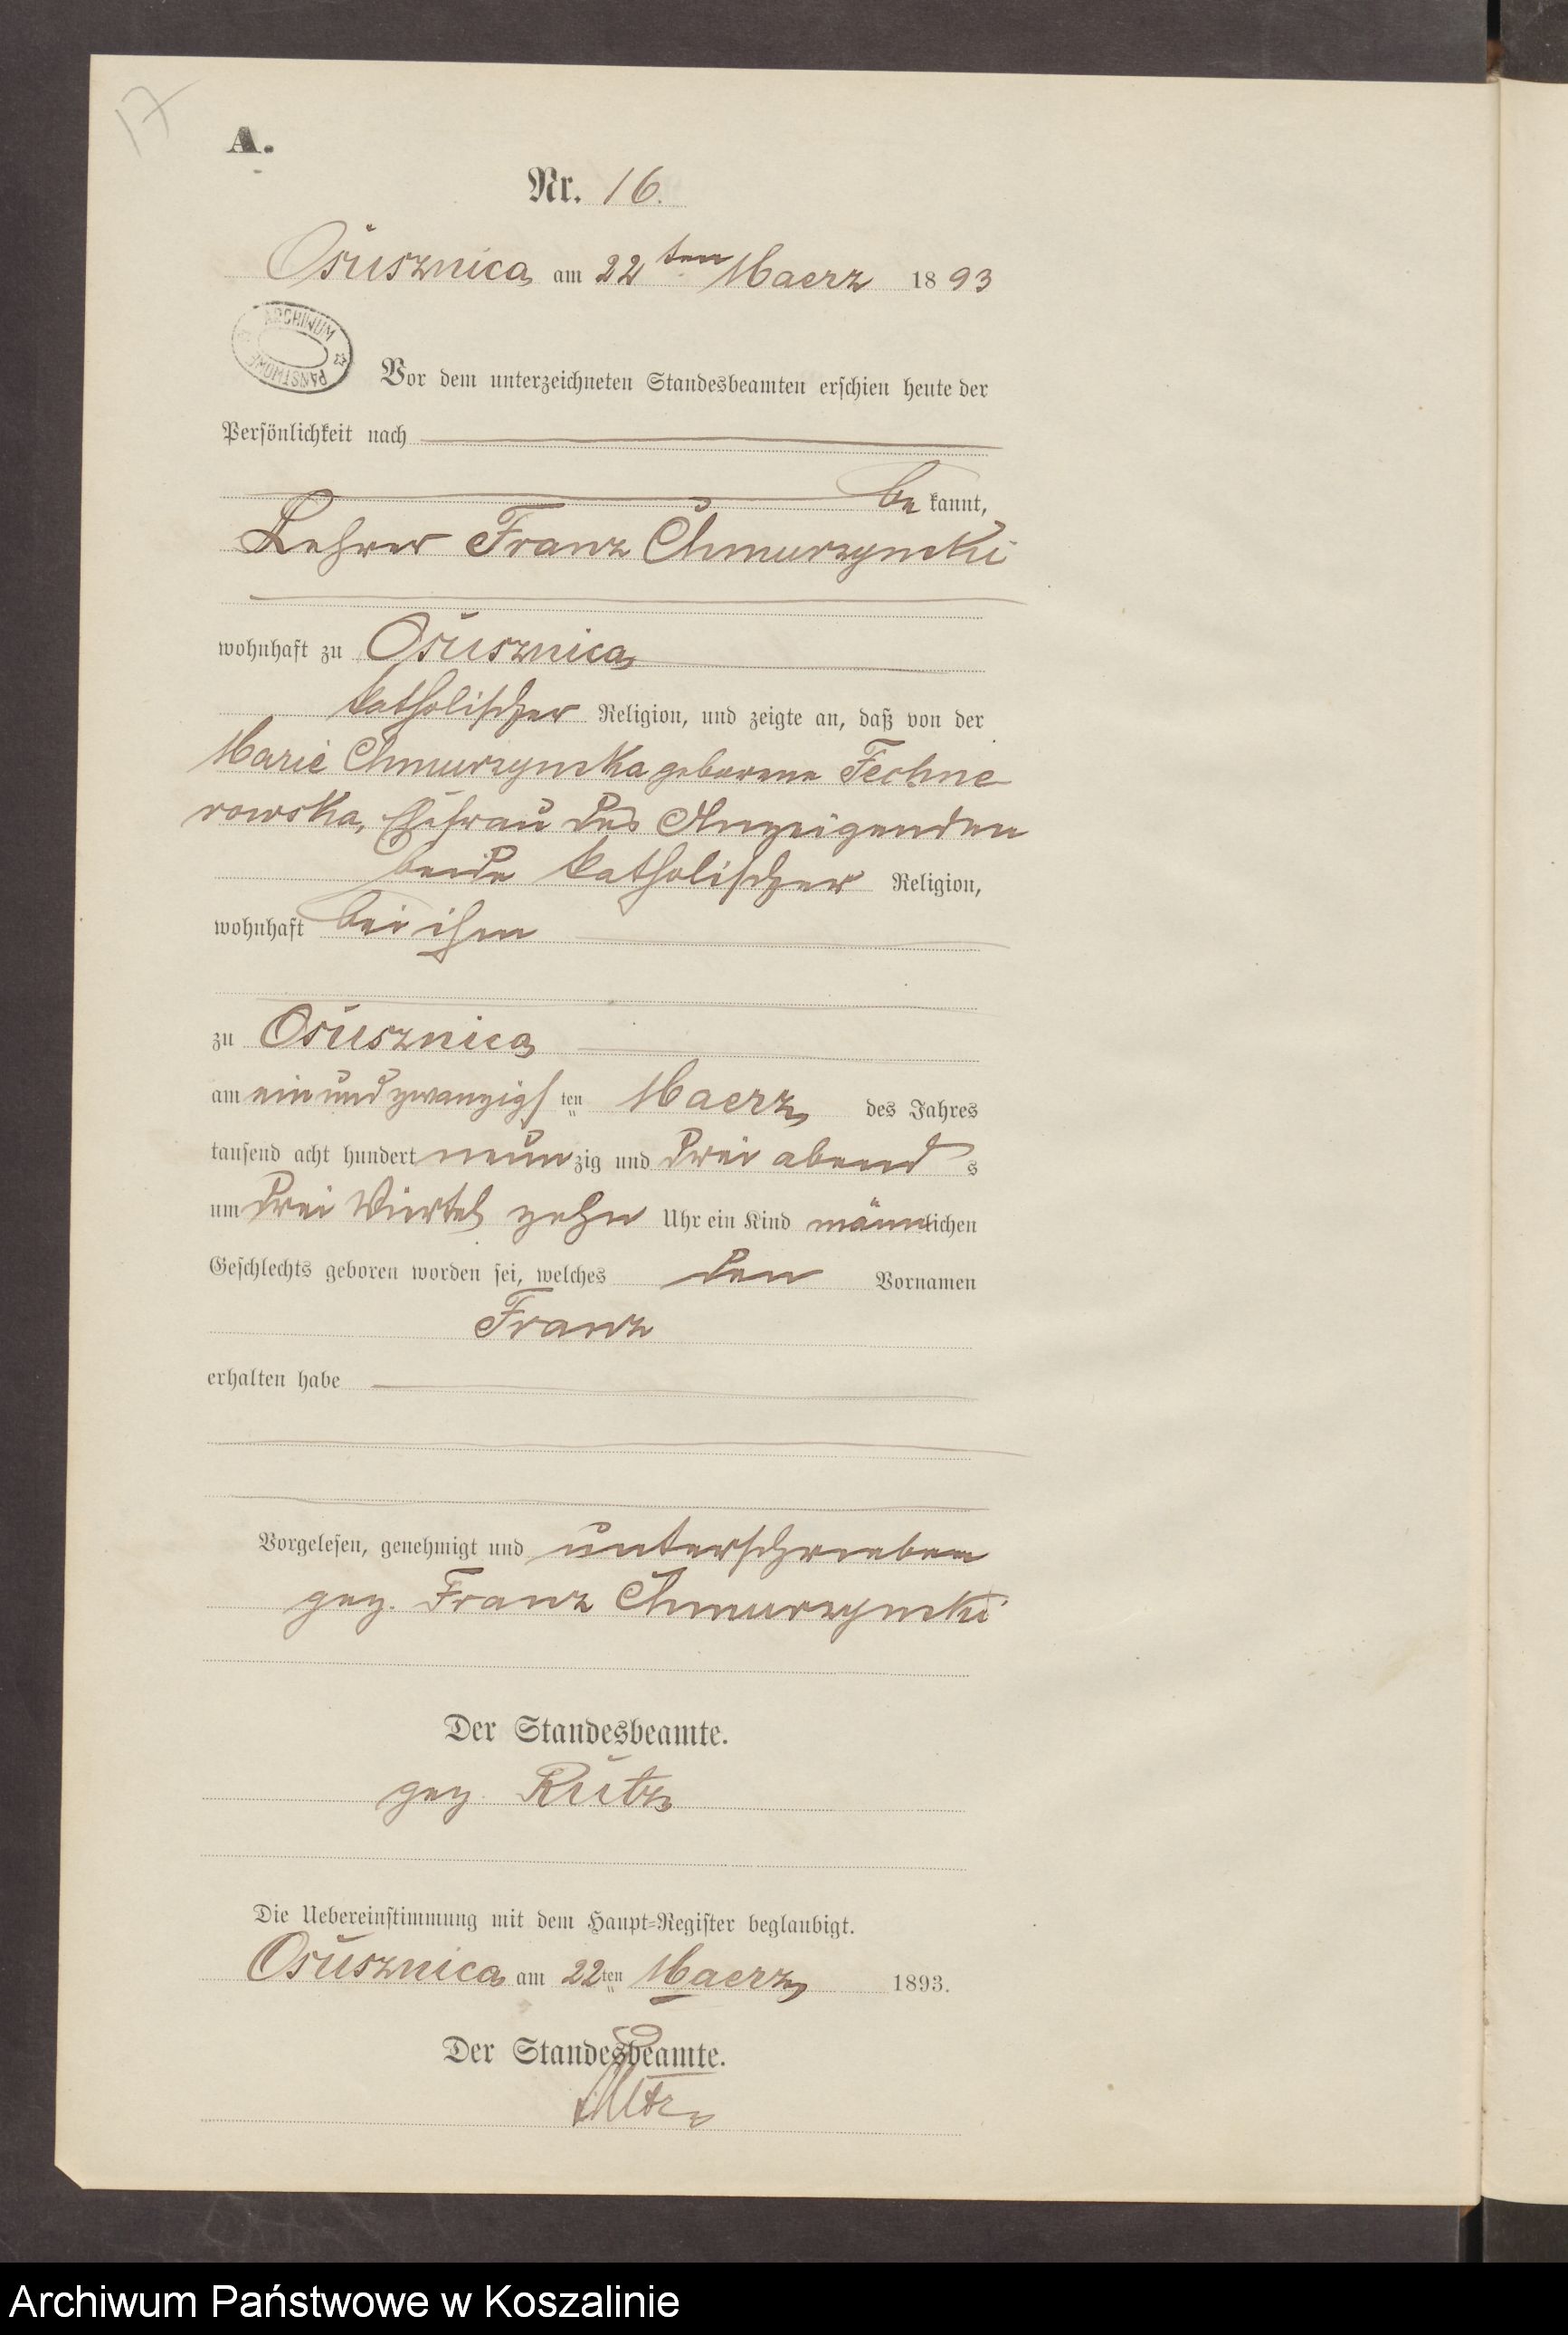 17
A.
Nr. 16.
Osusznica am 22ten Maerz 1893
ARCHIWUM PAŃSTWOWE
Vor dem unterzeichneten Standesbeamten erschien heute der
Persönlichkeit nach
be kannt,
Lehrer Franz Chmurzynski
wohnhaft zu Osusznica
katholischer Religion, und zeigte an, daß von der
Marie Chmurzynska geborene Fechne
rowska, Ehefrau des Anzeigenden
beide katholischer Religion,
wohnhaft bei ihm
zu Osusznica
am ein und zwanzigs ten Maerz des Jahres
tausend acht hundert neun zig und drei abend s
um drei Viertel zehn Uhr ein Kind männlichen
Geschlechts geboren worden sei, welches den Vornamen
Franz
erhalten habe
Vorgelesen, genehmigt und unterschrieben
gez. Franz Chmurzynski
Der Standesbeamte.
gez. Rutz
Die Uebereinstimmung mit dem Haupt=Register beglaubigt.
Osusznica am 22ten Maerz 1893.
Der Standesbeamte.
Rutz
Archiwum Państwowe w Koszalinie